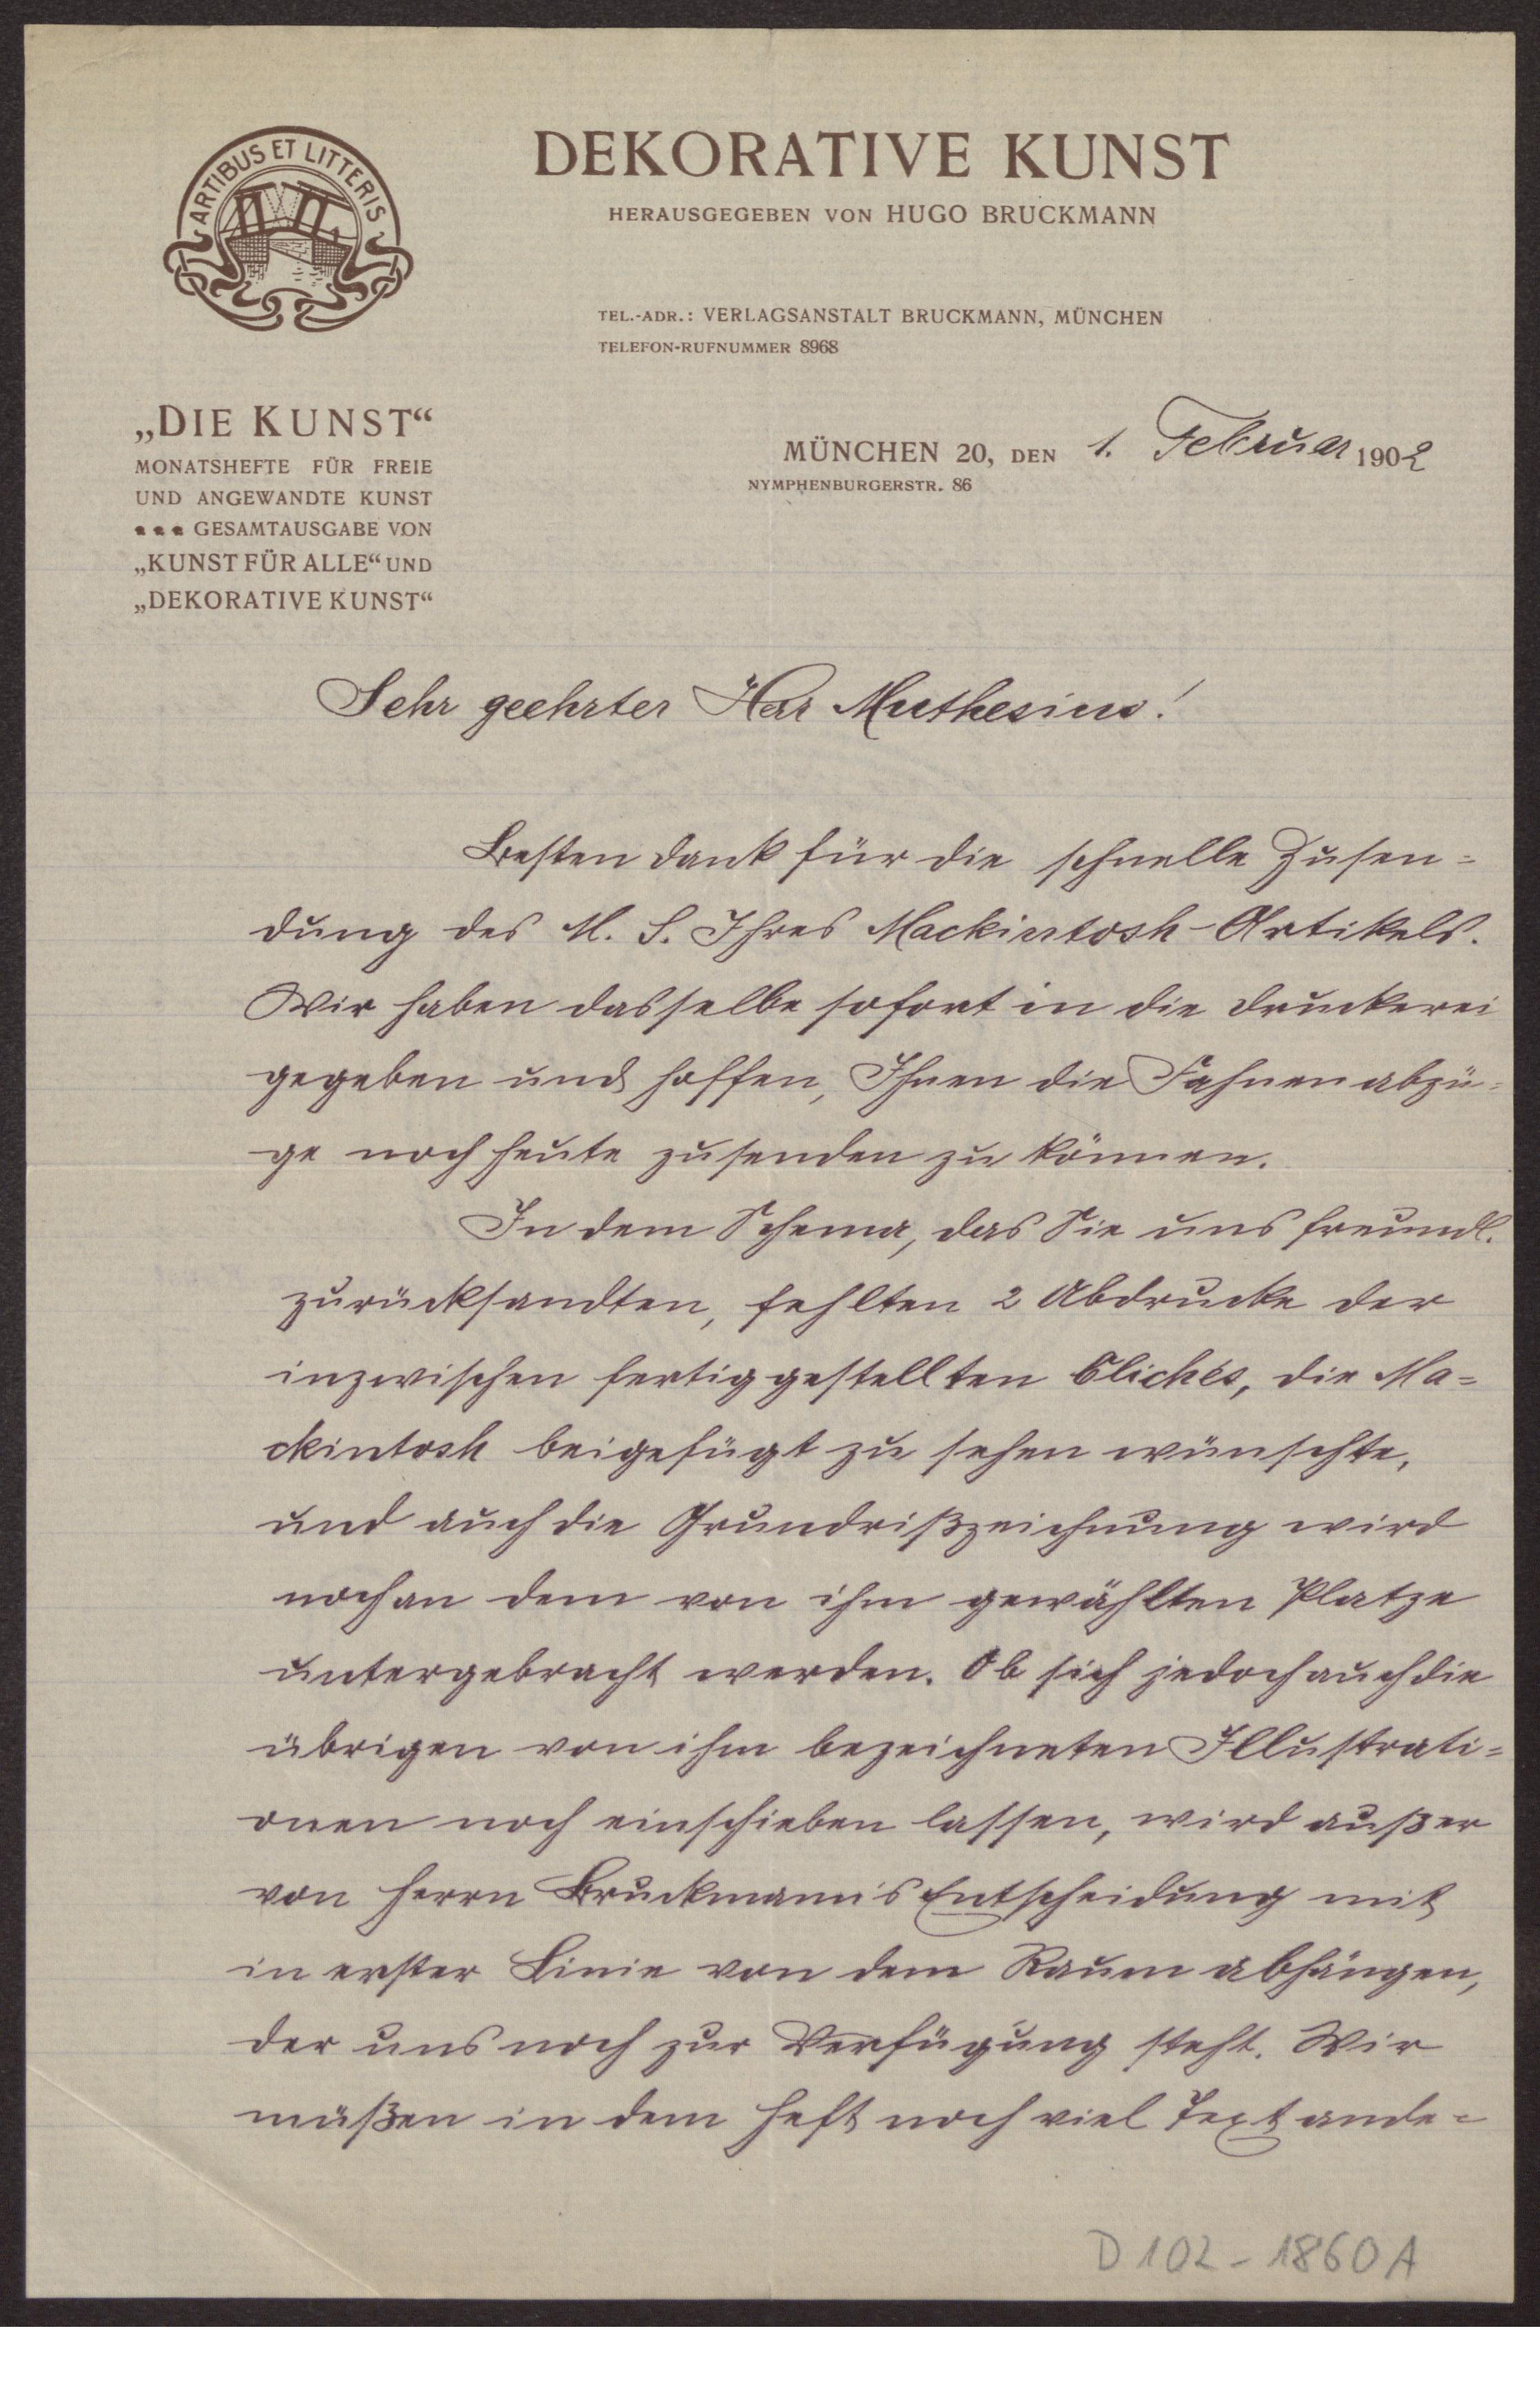 ARTIBUS ET LITTERIS
DEKORATIVE KUNST
HERAUSGEGEBEN VON HUGO BRUCKMANN
TEL.-ADR.: VERLAGSANSTALT BRUCKMANN, MÜNCHEN
TELEFON-RUFNUMMER 8968
„DIE KUNST“
MONATSHEFTE FÜR FREIE
UND ANGEWANDTE KUNST
GESAMTAUSGABE VON
„KUNST FÜR ALLE“ UND
„DEKORATIVE KUNST“
MÜNCHEN 20, DEN 1. Februar 1902
NYMPHENBURGERSTR. 86
Sehr geehrter Herr Muthesius!
Besten Dank für die schnelle Zusen=
dung des M. S. Ihres Mackintosh-Artikels.
Wir haben dasselbe sofort in die Druckerei
gegeben und hoffen, Ihnen die Fahnenabzü=
ge noch heute zusenden zu können.
In dem Schema, das Sie uns freundl.
zurücksandten, fehlten 2 Abdrucke der
inzwischen fertiggestellten Clichés, die Ma=
ckintosh beigefügt zu sehen wünschte,
und auch die Grundrißzeichnung wird
noch an dem von ihm gewählten Platze
untergebracht werden. Ob sich jedoch auch die
übrigen von ihm bezeichneten Illustrati=
onen noch einschieben lassen, wird außer
von Herrn Bruckmann's Entscheidung mit
in erster Linie von dem Raum abhängen,
der uns noch zur Verfügung steht. Wir
müßen in dem Heft noch viel Text ande=
D 102 - 1860 A